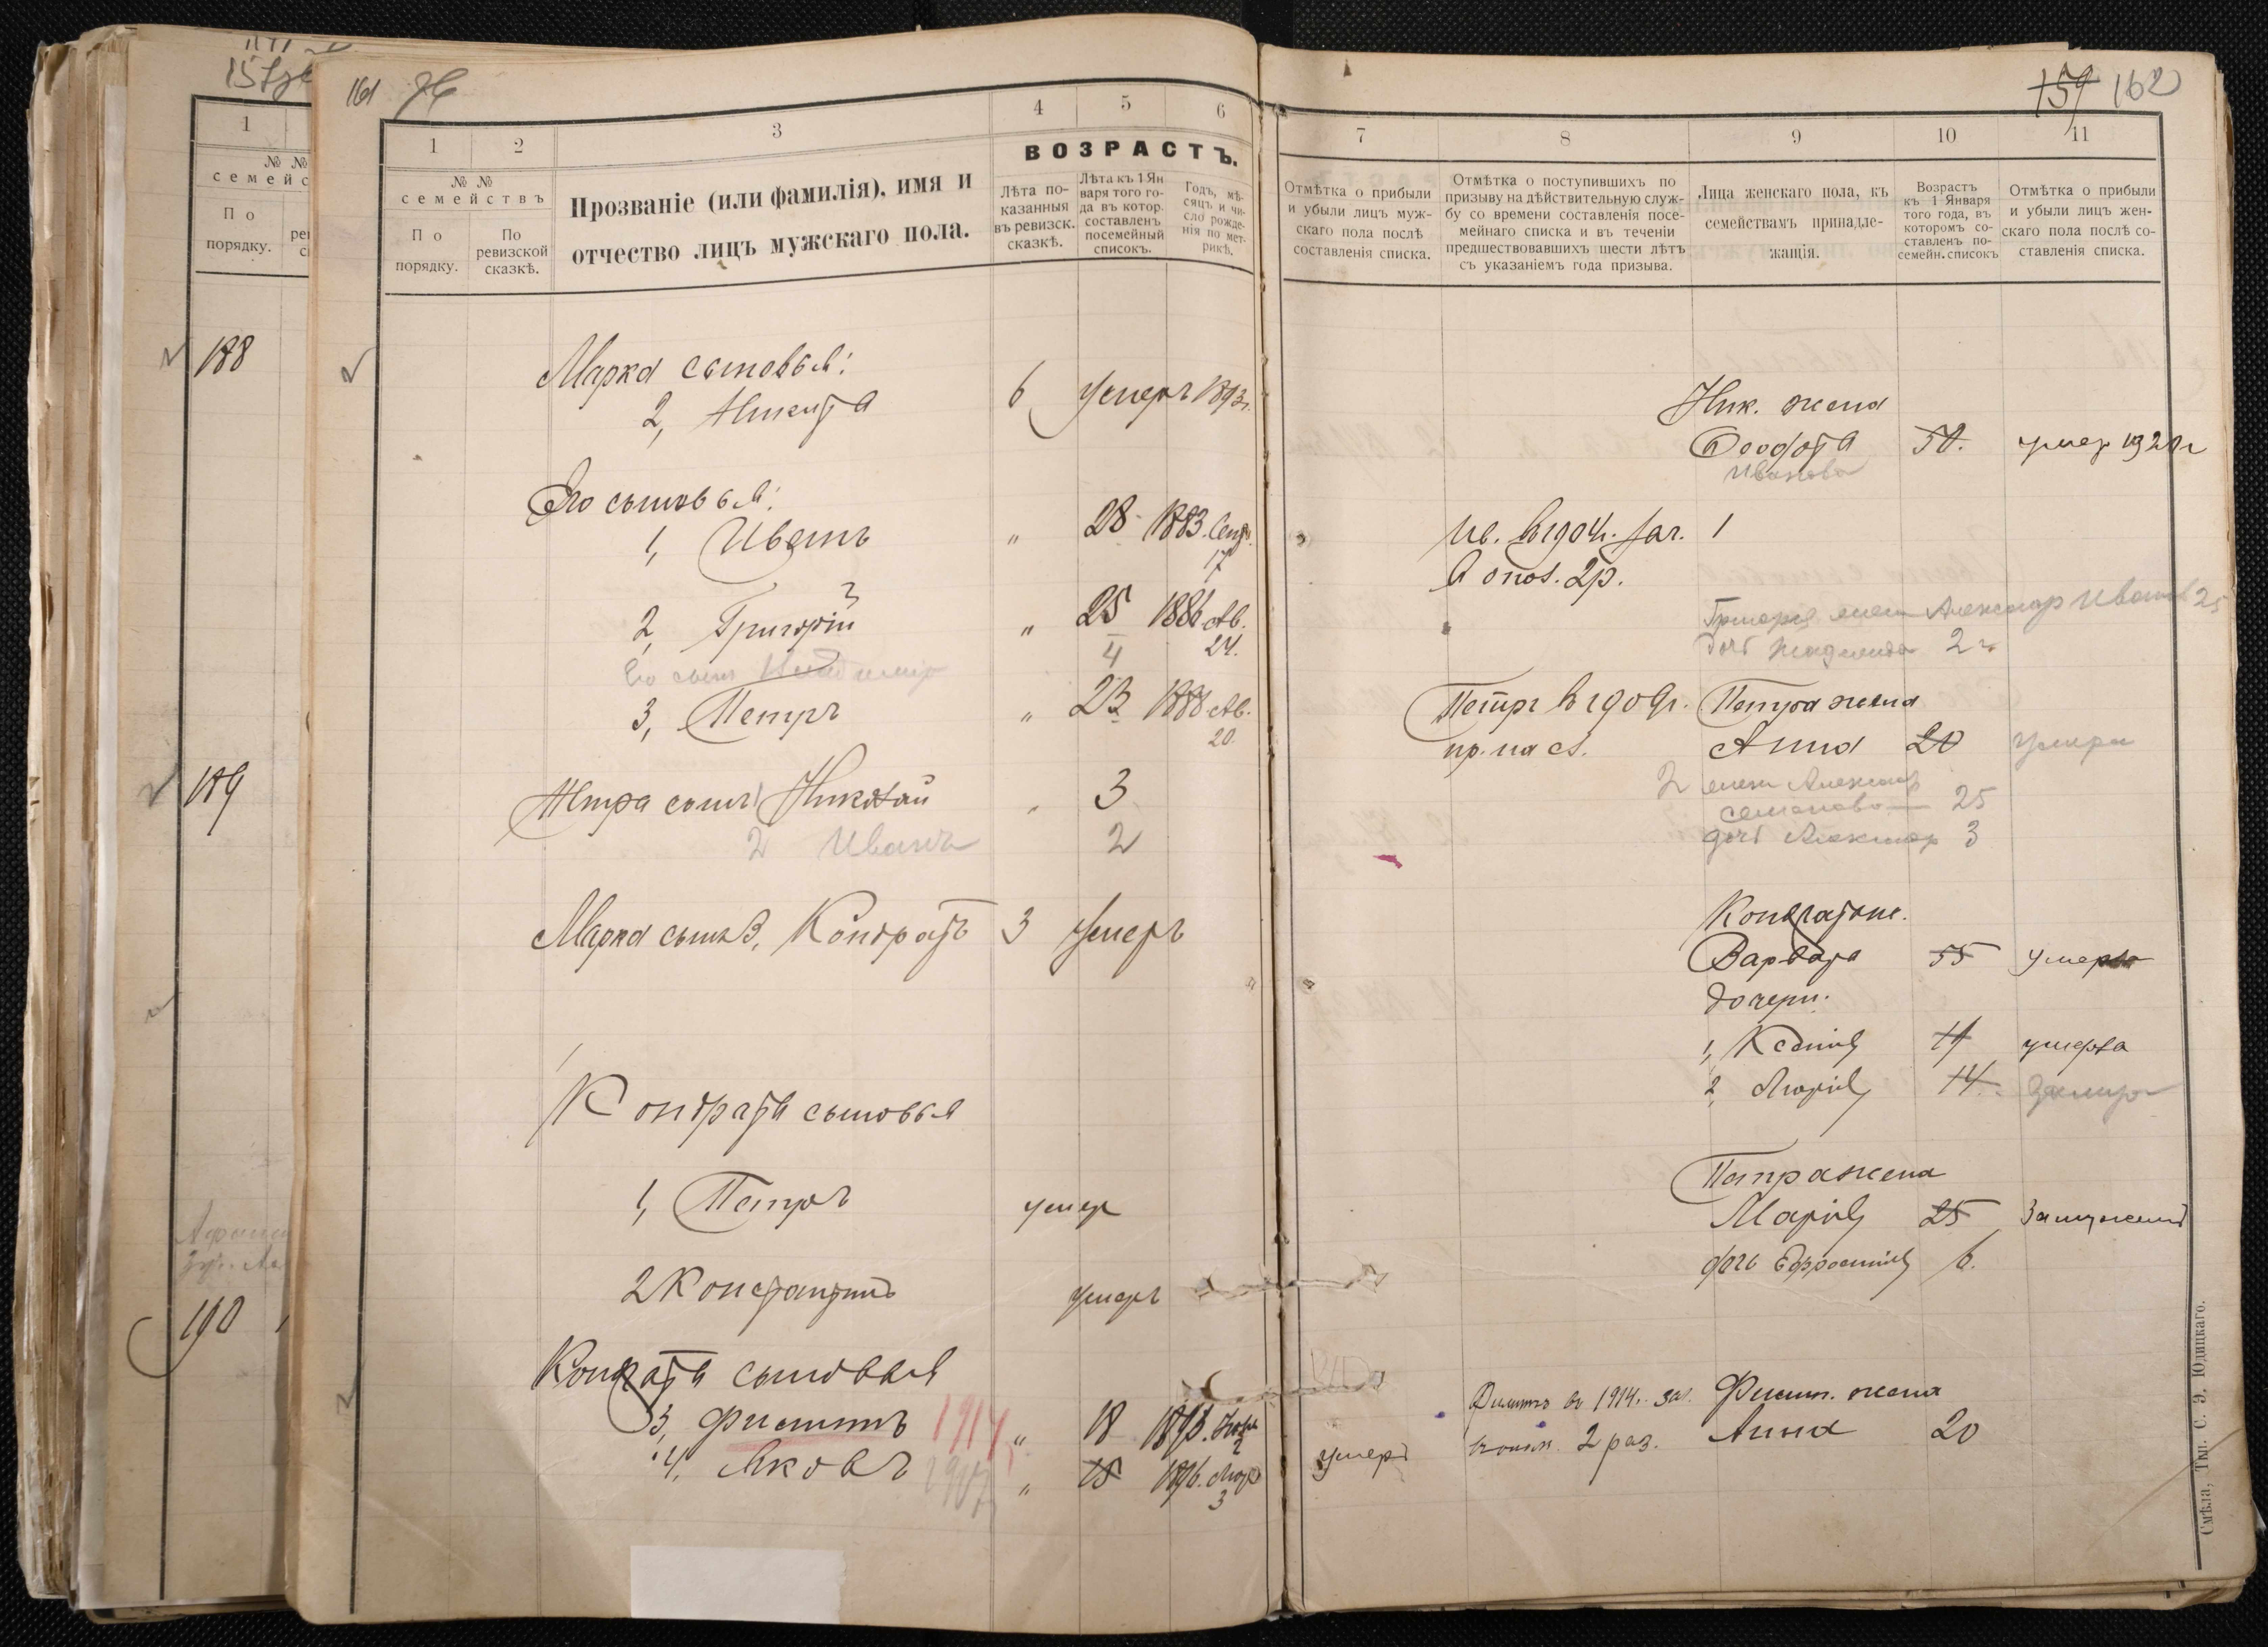 161
159 162
1
№ №
семейс
По
порядку.
188
189
190
1
2
3
4
5
6
№ №
семействъ
По
порядку.
По
ревизской
сказкѣ.
Прозваніе (или фамилія), имя и
отчество лицъ мужскаго пола.
ВОЗРАСТЪ.
Лѣта по-
казанныя
въ ревизск.
сказкѣ.
Лѣта къ 1 Ян
варя того го-
да въ котор.
составленъ
посемейный
списокъ.
Годъ, мѣ-
сяцъ и чи-
сло рожде-
нія по мет-
рикѣ.
Марка сыновья:
2, 6 Умеръ 1893г.
Его сыновья:
1, Иванъ " 28 1883. Сент.
17
2, Григорій " 25 1886 Ав.
4 24.
Его сынъ
3, Петръ " 23 1888 Ав.
20.
Петра сынъ 1 Николай " 3
2 Иванъ 2
Марка сынъ 3, Кондратъ 3 Умеръ
Кондрата сыновья
1, Петръ умер
2 Константинъ умеръ
Кондрата сыновья
3, Филиппъ 1914 " 18 1893.
2
4, Яковъ " 15 1896.
3
7
8
9
10
11
Отмѣтка о прибыли
и убыли лицъ муж-
скаго пола послѣ
составленія списка.
Отмѣтка о поступившихъ по
призыву на дѣйствительную служ-
бу со времени составленія посе-
мейнаго списка и въ теченіи
предшествовавшихъ шести лѣтъ
съ указаніемъ года призыва.
Лица женскаго пола, къ
семействамъ принадле-
жащія.
Возрастъ
къ 1 Января
того года, въ
которомъ со-
ставленъ по-
семейн. списокъ
Отмѣтка о прибыли
и убыли лицъ жен-
скаго пола послѣ со-
ставленія списка.
Ник. жена
50. умер 1920г
Иванова
Ив. въ 1904г. зач. 1
в опол. 2р.
Григорія жена Александр Иванов 25
дочь 2 г.
Петръ въ 1909г. Петра жена
Анна 20 умерла
2 жена Александ
Семенова 25
дочь Александр 3
Варвара 55 умерла
дочери.
1, Ксенія умерла
2, Марія 14
Петра жена
Марія 25 Замужем
дочь Ефросинія 6.
Филиппъ въ 1914г. зач. Филип. жена
умеръ 2 раз. Анна 20
Смѣла, Тип. С. Э. Юдицкаго.